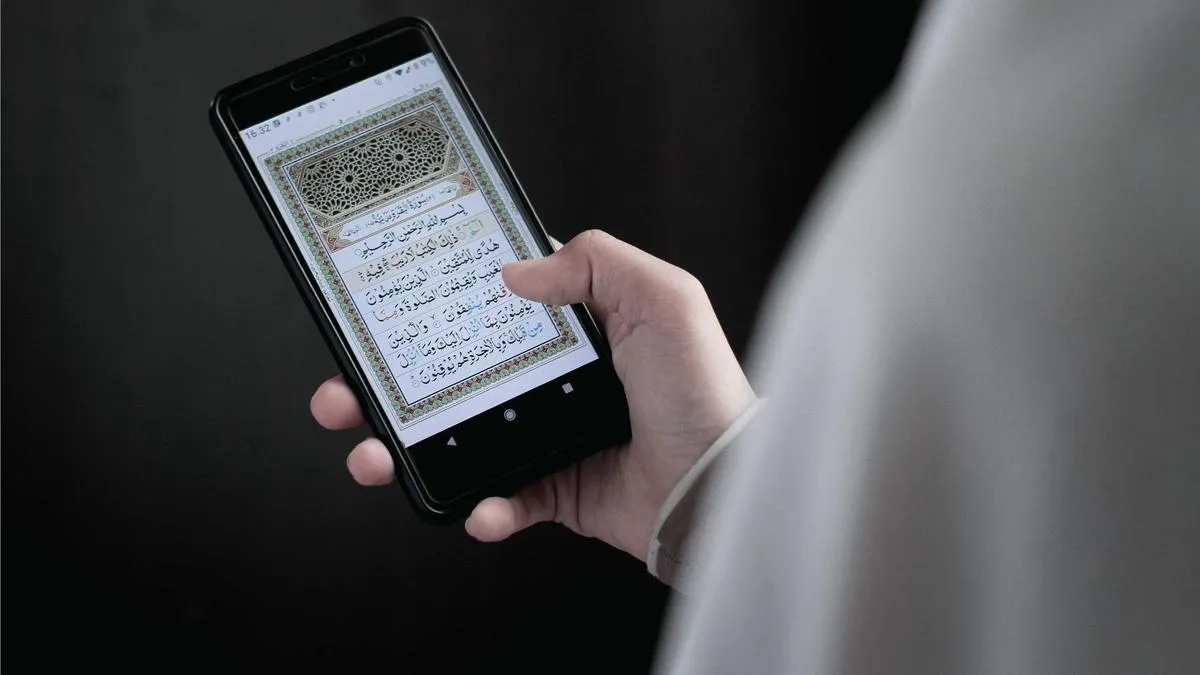 16.32 9%
سُوْرَةُ الْبَقَرَةِ مَدَنِيَّةٌ
بِسْمِ اللّٰهِ الرَّحْمٰنِ الرَّحِيْمِ
الٓمّٓ ذٰلِكَ الْكِتٰبُ لَا رَيْبَ ۛ فِيْهِ ۛ
هُدًى لِّلْمُتَّقِيْنَ الَّذِيْنَ يُؤْمِنُوْنَ
الْغَيْبِ وَيُقِيْمُوْنَ الصَّلٰوةَ وَمِمَّا
قْنٰهُمْ يُنْفِقُوْنَ وَالَّذِيْنَ
يُؤْمِنُوْنَ بِمَآ اُنْزِلَ اِلَيْكَ وَمَآ اُنْزِلَ
مِنْ قَبْلِكَ وَبِالْاٰخِرَةِ هُمْ يُوْقِنُوْنَ